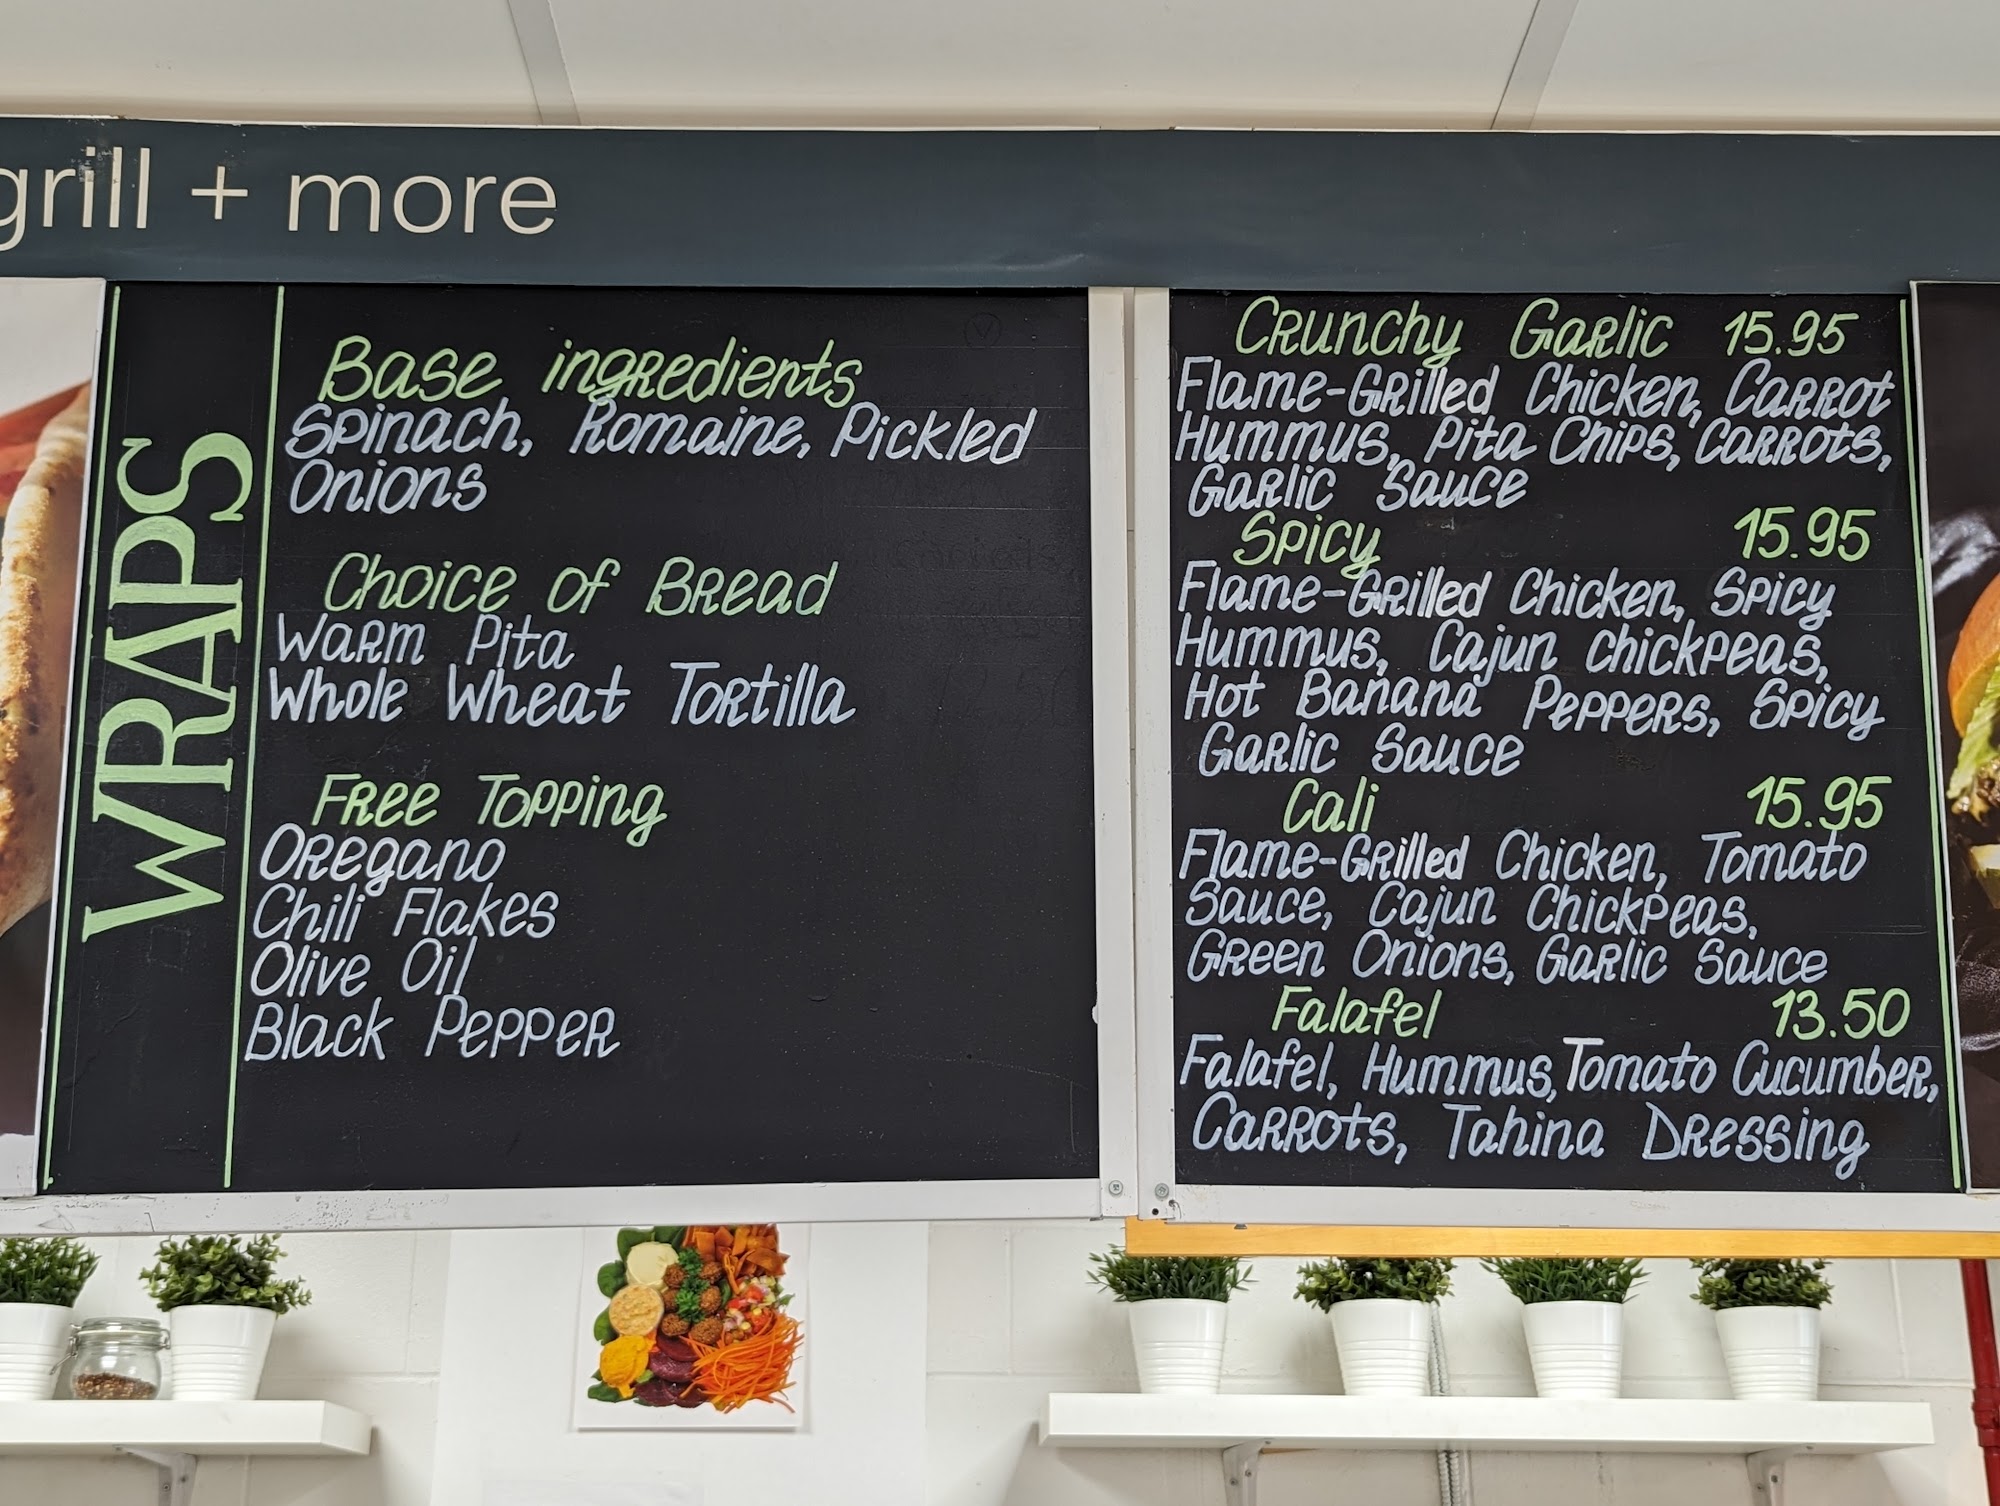 grill + more
WRAPS
Base ingredients
Spinach, Romaine, Pickled
Onions
Choice of Bread
Warm Pita
Whole Wheat Tortilla
Free Topping
Oregano
Chili Flakes
Olive Oil
Black Pepper
Crunchy Garlic 15.95
Flame-Grilled Chicken, Carrot
Hummus, Pita Chips, Carrots,
Garlic Sauce
Spicy 15.95
Flame-Grilled Chicken, Spicy
Hummus, Cajun Chickpeas,
Hot Banana Peppers, Spicy
Garlic Sauce
Cali 15.95
Flame-Grilled Chicken, Tomato
Sauce, Cajun Chickpeas,
Green Onions, Garlic Sauce
Falafel 13.50
Falafel, Hummus, Tomato Cucumber,
Carrots, Tahina Dressing